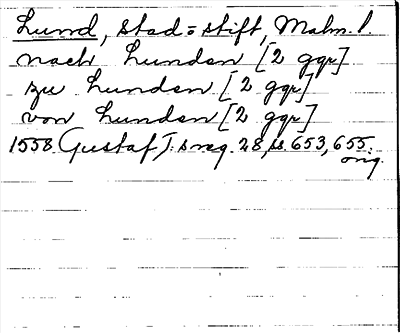 Lund, Stad = stift, Malm. l.
nach Lunden [2 ggr]
zu Lunden [2 ggr]
von Lunden [2 ggr]
1558 Gustaf I:s reg. 28, ss. 653, 655.
orig.